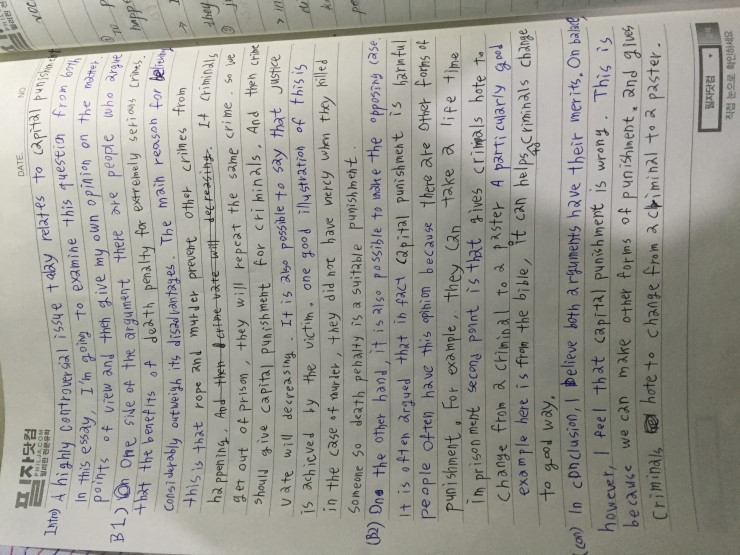 DATE. NO
필자닷컴
PHILJA.COM
필리핀 전문유학
Intro) A highly controversial issue today relates to capital punishment
In this essay, I'm going to examine this question from both
points of view and then give my own opinion on the matter.
B1) On One side of the argument there are people who argue
that the benefits of death penalty for extremely serious crimes.
Considerably outweigh its disadvantages. The main reason for believing
this is that rope and murder prevent other crimes from
happening. And then crime vate will decreasing. If criminals
get out of prison, they will repeat the same crime. so we
should give capital punishment for criminals. And then crime
vate will decreasing. It is also possible to say that justice
is achieved by the victim. one good illustration of this is
in the case of murder, they did not have mercy when they killed
someone so death penalty is a suitable punishment.
(B2) On the other hand, it is also possible to make the opposing case.
It is often argued that in fact capital punishment is harmful
people often have this opinion because there are other forms of
punishment. For example, they can take a life time
imprisonment second point is that gives crimals hote to
change from a criminal to a paster A particularly good
example here is from the bible, it can helps criminals change
to good way.
(con) In conclusion, I believe both arguments have their merits. On balance
however, I feel that capital punishment is wrong. This is
because we can make other forms of punishment. and gives
criminals hote to change from a criminal to a paster.
필자닷컴
직접 눈으로 확인하세요